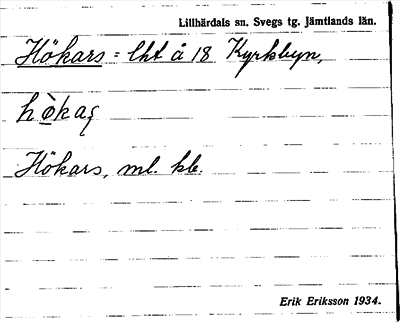 Lillhärdals sn. Svegs tg. Jämtlands län.
Hökars = lht å 18 Kyrkbyn,
Hökars, ml. kb.
Erik Eriksson 1934.